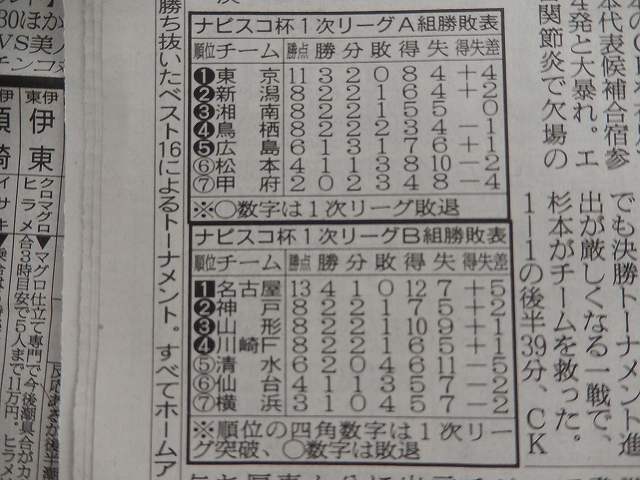 本代表候補合宿参
4発と大暴れ。エ
関節炎で欠場の
でも決勝トーナメント進
出が厳しくなる一戦で、
杉本がチームを救った。
1―1の後半39分、CK
ナビスコ杯1次リーグA組勝敗表
順位チーム 勝点 勝 分 敗 得 失 得失差
❶東京 11 3 2 0 8 4 +4
❷新潟 8 2 2 1 6 4 +2
❸湘南 8 2 2 1 5 5 0
❹鳥栖 8 2 2 1 3 4 −1
❺広島 6 1 3 1 7 6 +1
⑥松本 4 1 1 3 8 10 −2
⑦甲府 2 0 2 3 4 8 −4
※○数字は1次リーグ敗退
ナビスコ杯1次リーグB組勝敗表
順位チーム 勝点 勝 分 敗 得 失 得失差
1名古屋 13 4 1 0 12 7 +5
❷神戸 8 2 2 1 7 5 +2
❸山形 8 2 2 1 10 9 +1
❹川崎F 8 2 2 1 6 5 +1
⑤清水 6 2 0 4 6 11 −5
⑥仙台 4 1 1 3 5 7 −2
⑦横浜 3 1 0 4 5 7 −2
※順位の四角数字は1次リー
グ突破、○数字は敗退
勝ち抜いたベスト16によるトーナメント。すべてホームア
30ほか
VS美人
伊東
クロマグロ
ヒラメ
▼マグロ仕立て専門で今後潮具合がカ
合3時目安で5人まで11万円。ヒラメ